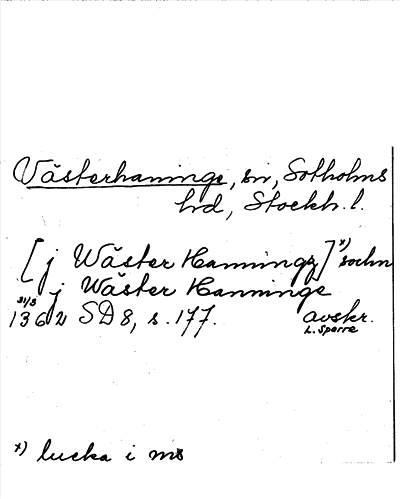 Västerhaninge, sn, Sotholms
hd, Stockh. l.
[j Wäster Hanningz]x) sochn
j Wäster Hanninge
31/3
1362 SD 8, s. 177. avskr.
L. Sparre
x) lucka i ms